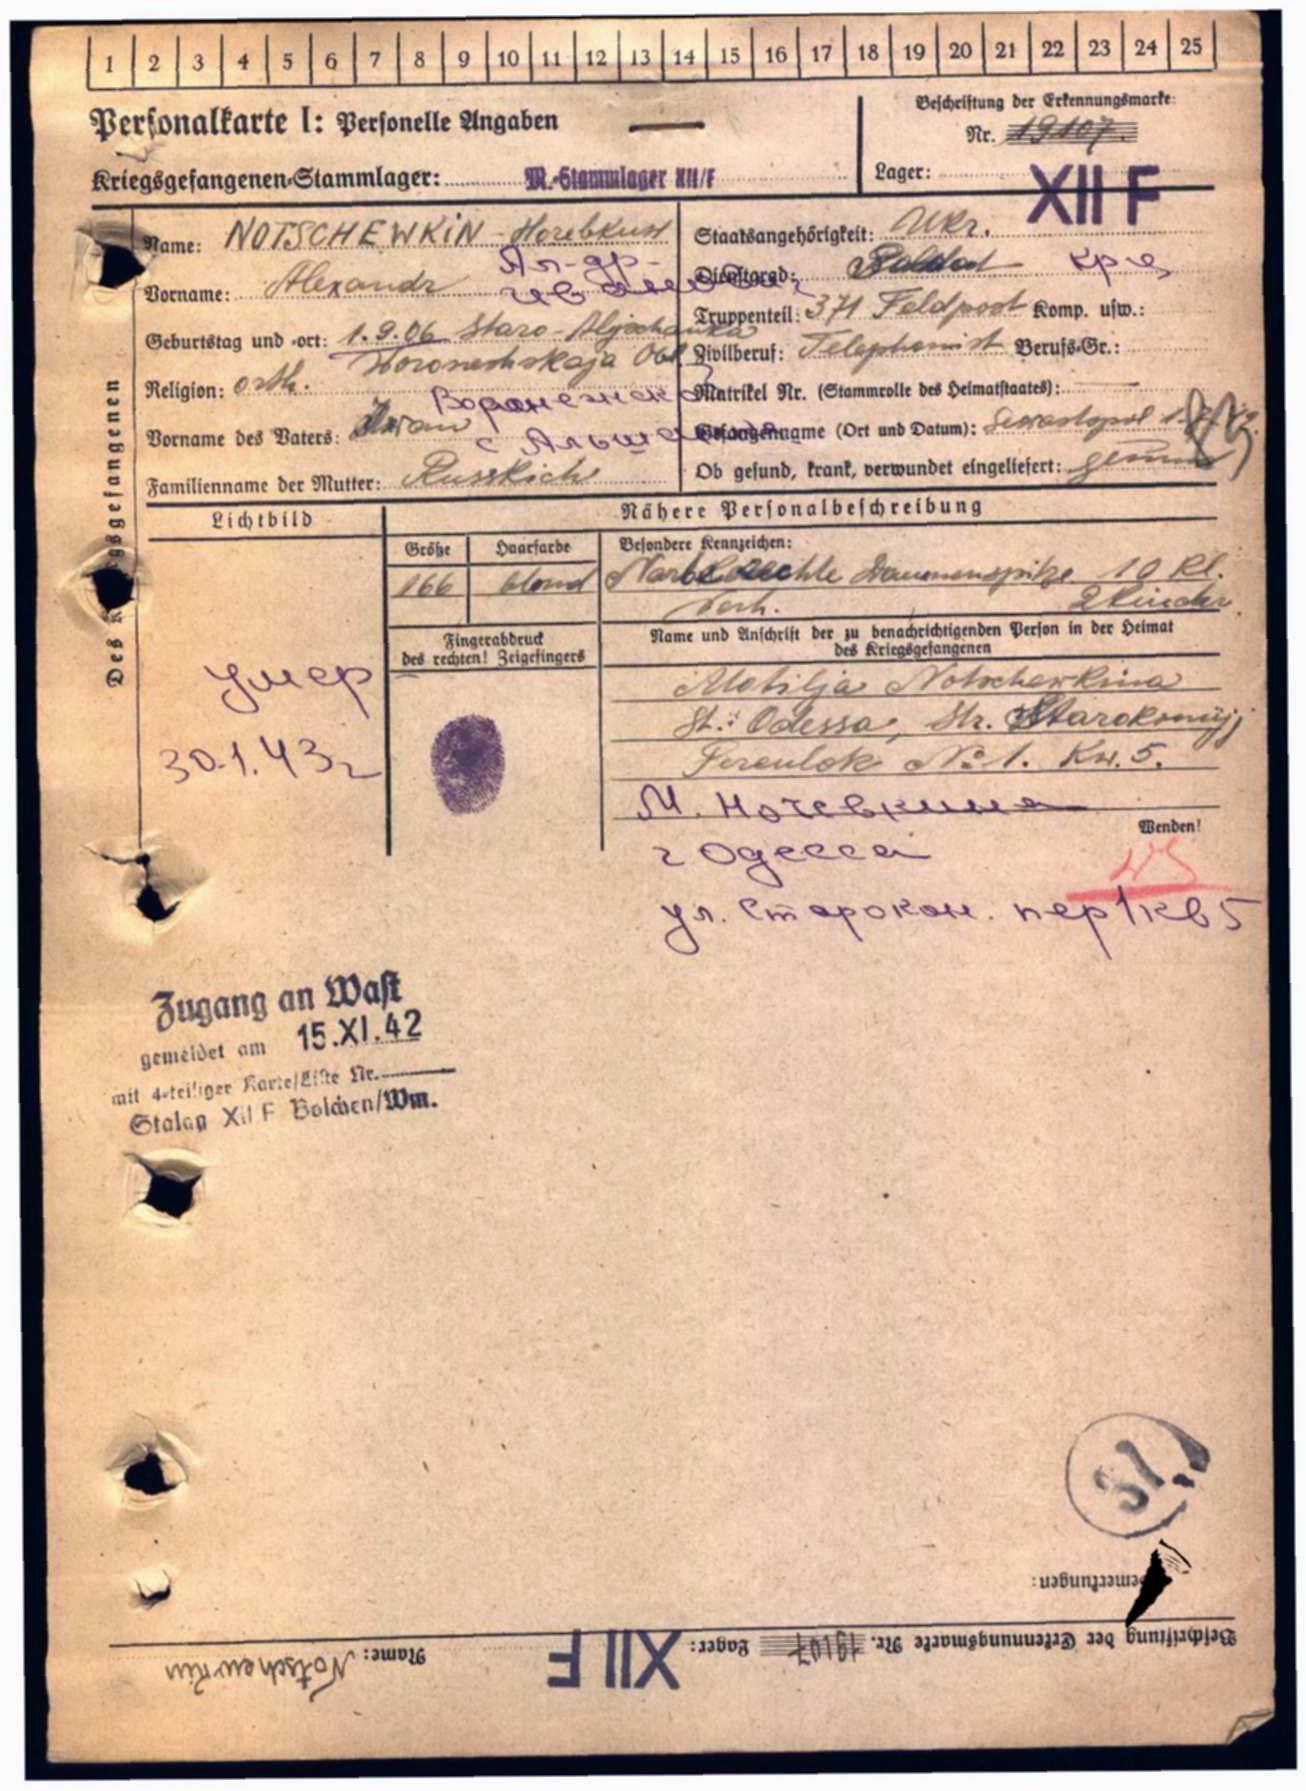 1 2 3 4 5 6 7 8 9 10 11 12 13 14 15 16 17 18 19 20 21 22 23 24 25
Personalkarte I: Personelle Angaben
Beschriftung der Erkennungsmarke:
Nr. 19107.
Kriegsgefangenen-Stammlager: M.-Stammlager XII/F
Lager: XII F
Des Kriegsgefangenen
Name: NOTSCHEWKIN - Ночевкин
Ал-др-
Vorname: Alexandr
Иванович
Geburtstag und -ort: 1.9.06 Staro-Aljschanka
Woroneshskaja Obl.
Religion: orth.
Воронежск
Vorname des Vaters: Iwan
с Альшанка
Familienname der Mutter: Russkich
Staatsangehörigkeit: Ukr.
Dienstgrad: Soldat кр-ц
Truppenteil: 371 Feldpost Komp. usw.:
Zivilberuf: Telephonist Berufs-Gr.:
Matrikel Nr. (Stammrolle des Heimatstaates):
Gefangennahme (Ort und Datum): Sewastopol 1.7.42
Ob gesund, krank, verwundet eingeliefert: gesund
Lichtbild
Nähere Personalbeschreibung
Größe Haarfarbe Besondere Kennzeichen:
166 blond Narbe rechte Daumenspitze 10 Kl.
Verh. 2 Kinder
Fingerabdruck
des rechten! Zeigefingers
Name und Anschrift der zu benachrichtigenden Person in der Heimat
des Kriegsgefangenen
умер
30.1.43г
Motilja Notschewkina
St.: Odessa, Str. Starokonnyj
Pereulok № 1. Kw. 5.
М. Ночевкина
Wenden!
г Одесса
ул. Старокон. пер 1 кв 5
Zugang an Wast
gemeldet am 15.XI.42
mit 4-teiliger Karte/Liste Nr.
Stalag XII F Bolchen/Wm.
Bemerkungen:
Beschriftung der Erkennungsmarke Nr. 19107 Lager: XII F Name: Notschewkin